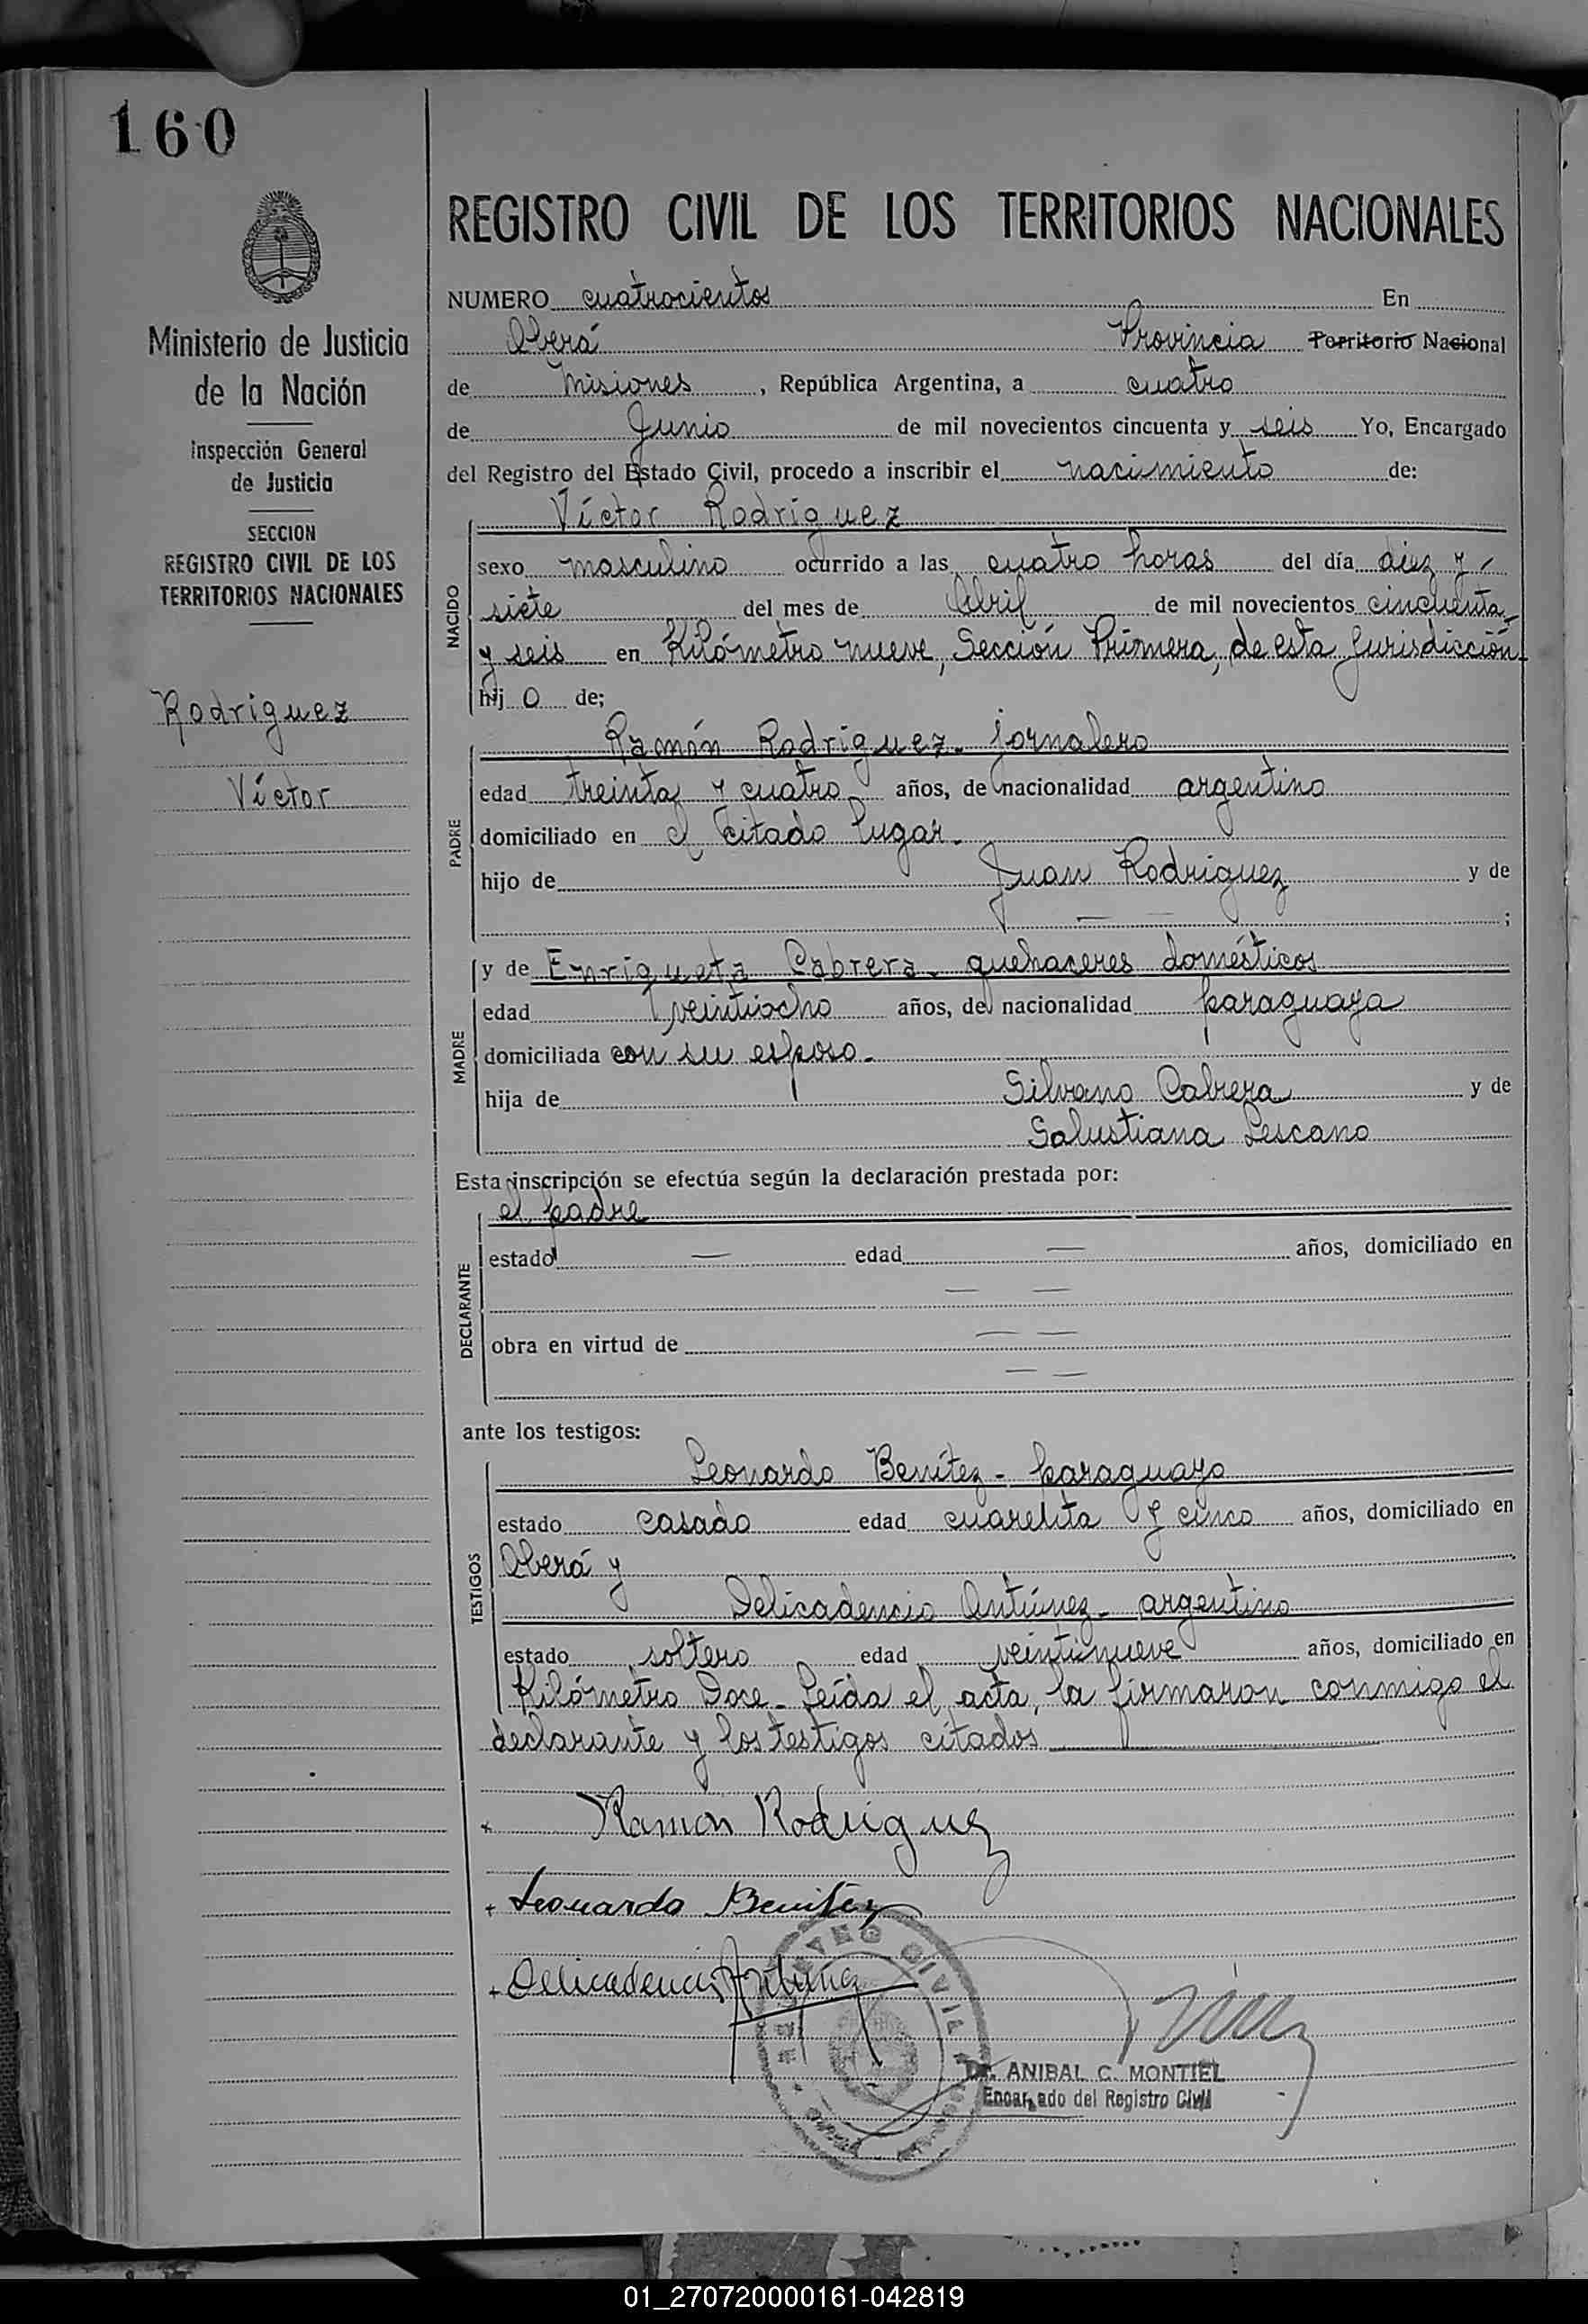 160
REGISTRO CIVIL DE LOS TERRITORIOS NACIONALES
Ministerio de Justicia
de la Nación
Inspección General
de Justicia
SECCION
REGISTRO CIVIL DE LOS
TERRITORIOS NACIONALES
Rodriguez
Víctor
NUMERO cuatrocientos En
Oberá Provincia Territorio Nacional
de Misiones, República Argentina, a cuatro
de Junio de mil novecientos cincuenta y seis Yo, Encargado
del Registro del Estado Civil, procedo a inscribir el nacimiento de:
NACIDO
Víctor Rodriguez
sexo masculino ocurrido a las cuatro horas del día diez y
siete del mes de Abril de mil novecientos cincuenta
y seis en Kilómetro nueve, Sección Primera, de esta Jurisdicción
hij o de;
PADRE
Ramón Rodriguez - jornalero
edad treinta y cuatro años, de nacionalidad argentino
domiciliado en el citado lugar.
hijo de Juan Rodriguez y de
— — ;
MADRE
y de Enriqueta Cabrera - quehaceres domésticos
edad veintiocho años, de nacionalidad paraguaya
domiciliada con su esposo -
hija de Silvano Cabrera y de
Salustiana Lescano
Esta inscripción se efectúa según la declaración prestada por:
DECLARANTE
el padre
estado — edad — años, domiciliado en
— —
obra en virtud de — —
— —
ante los testigos:
TESTIGOS
Leonardo Benítez - paraguayo
estado casado edad cuarenta y cinco años, domiciliado en
Oberá y
Delicadencio Antúnez - argentino
estado soltero edad veintinueve años, domiciliado en
Kilómetro Doce - Leída el acta, la firmaron conmigo el
declarante y los testigos citados
+ Ramon Rodriguez
+ Leonardo Benitez
+ Delicadencio Antunez
REGISTRO CIVIL
Dr. ANIBAL C. MONTIEL
Encargado del Registro Civil
01_270720000161-042819